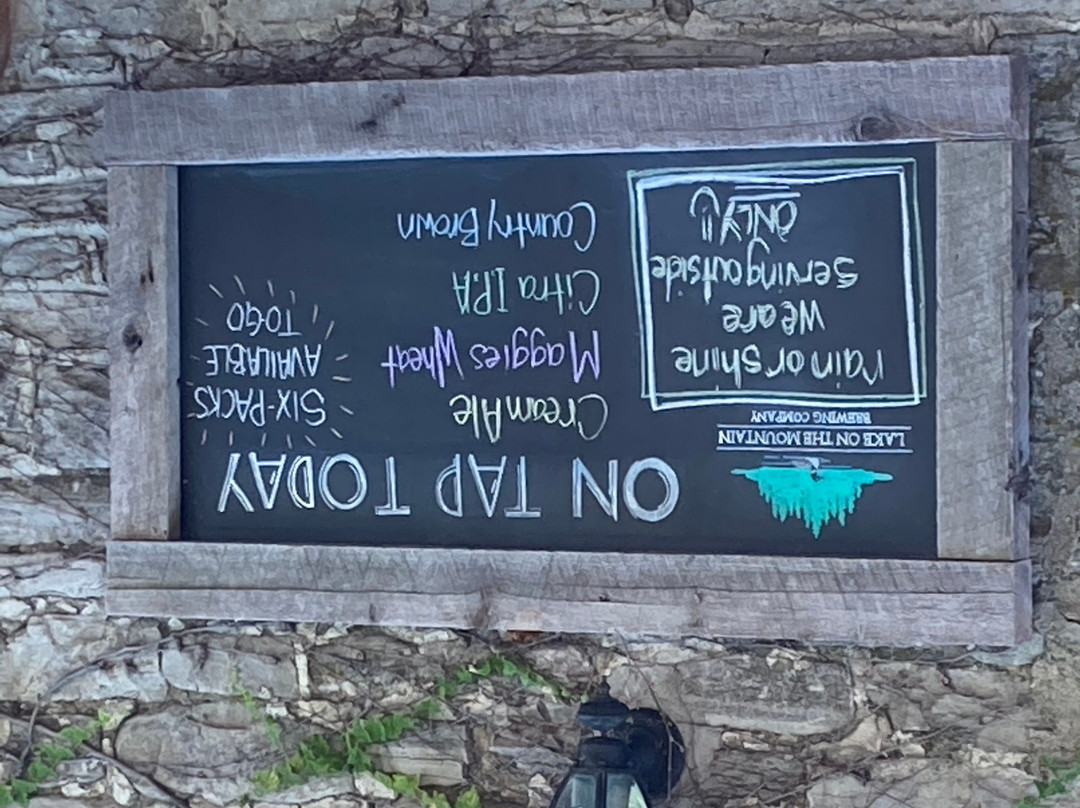 LAKE ON THE MOUNTAIN
BREWING COMPANY
rain or shine
we are
serving outside
ONLY!!
ON TAP TODAY
Cream Ale
Maggies Wheat
Citra I.P.A
Country Brown
SIX-PACKS
AVAILABLE
TO-GO